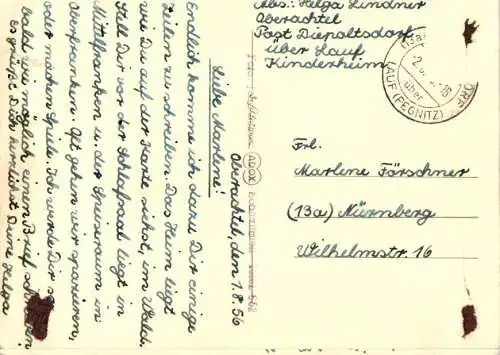 Abs.: Helga Lindner
Oberachtel
Post Diepoltsdorf
über Lauf
Kinderheim
über
LAUF (PEGNITZ)
DORF
Frl.
Marlene Förschner
(13a) Nürnberg
Wilhelmstr. 16
ADOX
Oberachtel, den 1.8.56
Liebe Marlene!
Endlich komme ich dazu Dir einige
Zeilen zu schreiben. Das Heim liegt
wie Du auf der Karte siehst, im Wald.
Stell Dir vor der Schlafsaal liegt in
Mittelfranken u. der Speiseraum in
Oberfranken. Oft gehen wir spazieren,
oder machen Spiele. Ich werde Dir so
bald wie möglich einen Brief schreiben.
Es grüßt Dich herzlichst Deine Helga